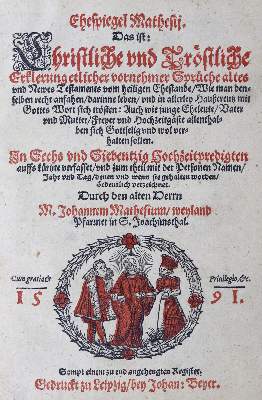 Ehespiegel Mathesij.
Das ist:
Christliche vnd Tröstliche
Erklerung etlicher vornehmer Sprüche altes
vnd Newes Testaments vom heiligen Ehestande / Wie man den-
selben recht anfahen / darinne leben / vnd in allerley Hauscreutz mit
Gottes Wort sich trösten: Auch wie junge Eheleute / Vater
vnd Mutter / Freyer vnd Hochzeitgäste allenthal-
ben sich Gottselig vnd wol ver-
halten sollen.
In Sechs vnd Siebentzig Hochzeitpredigten
auffs kürtzte verfasset / vnd zum theil mit der Personen Namen /
Jahr vnd Tag / denen vnd wenn sie gehalten worden /
ördentlich verzeichnet.
Durch den alten Herrn
M. Johannem Mathesium / weyland
Pfarrner in S. Joachimsthal.
Cum gratia & Priuilegio, &c.
15 91.
Sampt einem zu end angehengten Register.
Gedruckt zu Leipzig / bey Johan: Beyer.